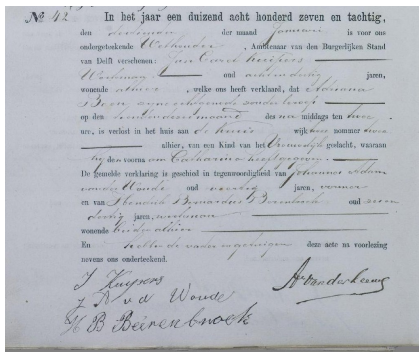 No 42 In het jaar een duizend acht honderd zeven en tachtig,
den der maand Januari is voor ons
ondergeteekende Wethouder, Ambtenaar van den Burgerlijken Stand
van Delft verschenen: Jan Kuijpers
Werkman oud acht en dertig jaren,
wonende alhier, welke ons heeft verklaard, dat Adriana
zijne echtgenoote zonder beroep
op den dezer maand des na middags ten twee
ure, is verlost in het huis aan de wijk nommer
alhier, van een Kind van het Vrouwelijk geslacht, waaraan
hij den voornaam Catharina heeft gegeven.
De gemelde verklaring is geschied in tegenwoordigheid van Johannes Adam
van der Woude oud veertig jaren,
en van Hendrik Bernardus Beerenbroek oud zeven
dertig jaren, werkman
wonende beiden alhier
En hebben de vader en getuigen deze acte na voorlezing
nevens ons onderteekend.
J Kuypers
J A v d Woude
H B Beerenbroek